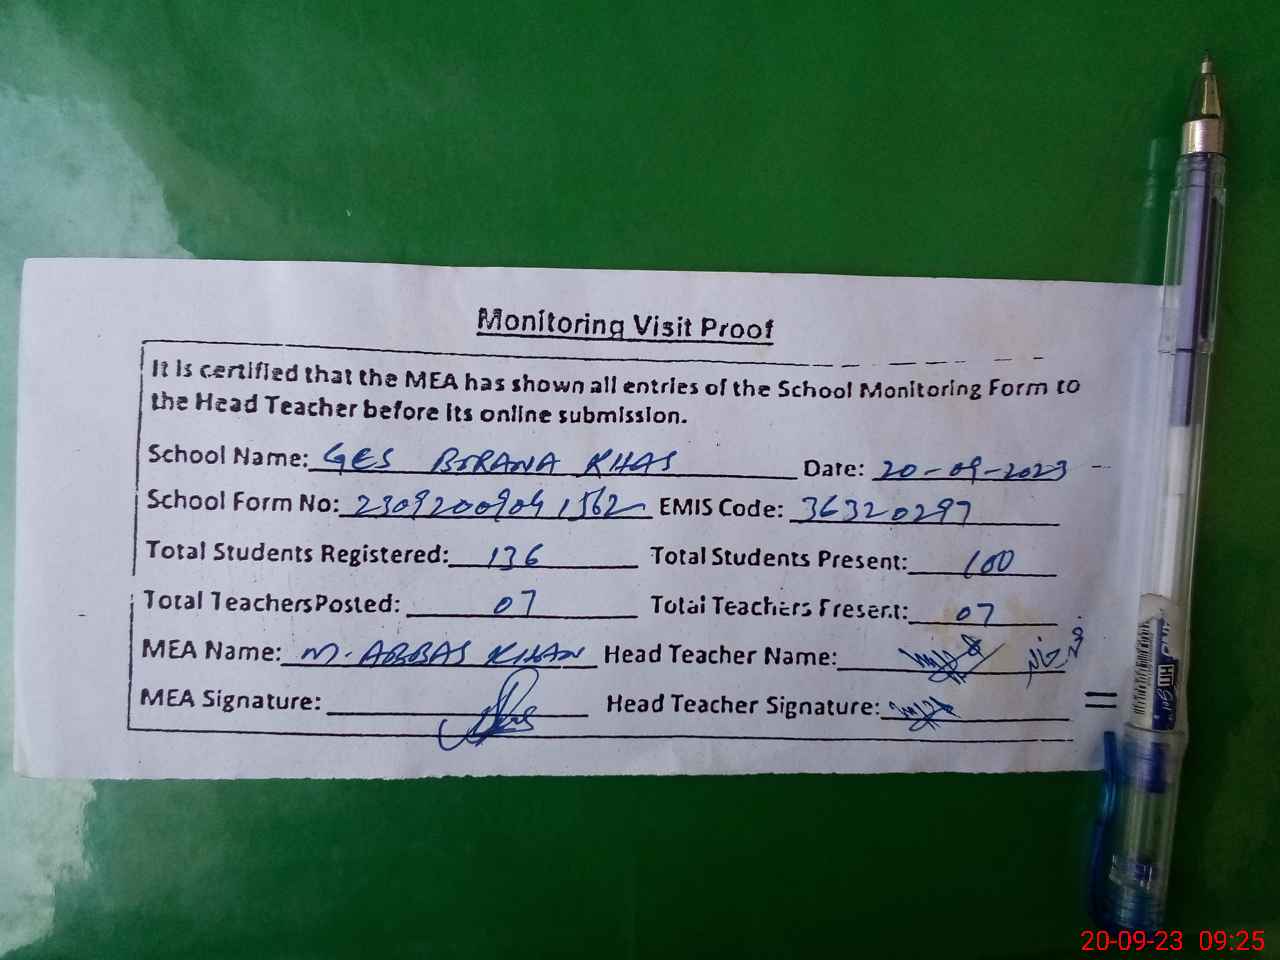 Monitoring Visit Proof
It is certified that the MEA has shown all entries of the School Monitoring Form to
the Head Teacher before its online submission.
School Name: GES BIRANA KHAS Date: 20-09-2023
School Form No: 23092009041562 EMIS Code: 36320297
Total Students Registered: 136 Total Students Present: 100
Total Teachers Posted: 07 Total Teachers Present: 07
MEA Name: M. ABBAS KHAN Head Teacher Name:
MEA Signature: Head Teacher Signature:
20-09-23 09:25